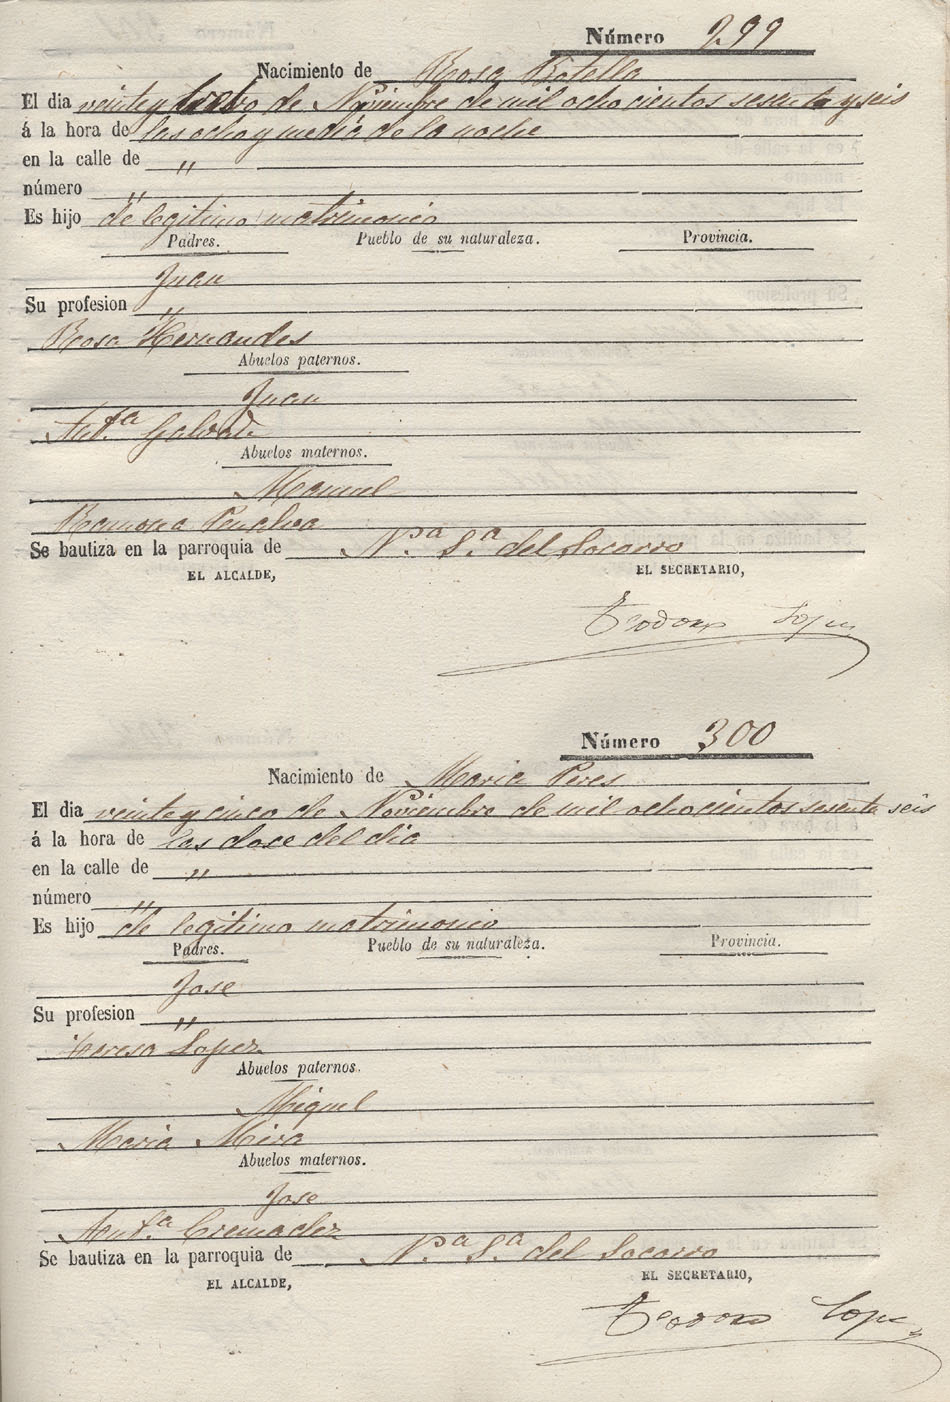 Número 299
Nacimiento de Rosa Botella
El dia veinte y de Noviembre de mil ochocientos sesenta y seis
á la hora de las ocho y media de la noche
en la calle de "
número "
Es hijo de legitimo matrimonio
Padres. Pueblo de su naturaleza. Provincia.
Juan
Su profesion "
Rosa Hernandes
Abuelos paternos.
Juan
Ant.ª
Abuelos maternos.
Manuel
Ramona Penalva
Se bautiza en la parroquia de N.ª S.ª del Socorro
EL ALCALDE, EL SECRETARIO,
Teodoro
Número 300
Nacimiento de Maria Peres
El dia veinte y cinco de Noviembre de mil ochocientos sesenta seis
á la hora de las doce del dia
en la calle de "
número "
Es hijo de legitimo matrimonio
Padres. Pueblo de su naturaleza. Provincia.
Jose
Su profesion "
Teresa Lopez
Abuelos paternos.
Miguel
Maria Mira
Abuelos maternos.
Jose
Ant.ª Cremadez
Se bautiza en la parroquia de N.ª S.ª del Socorro
EL ALCALDE, EL SECRETARIO,
Teodoro